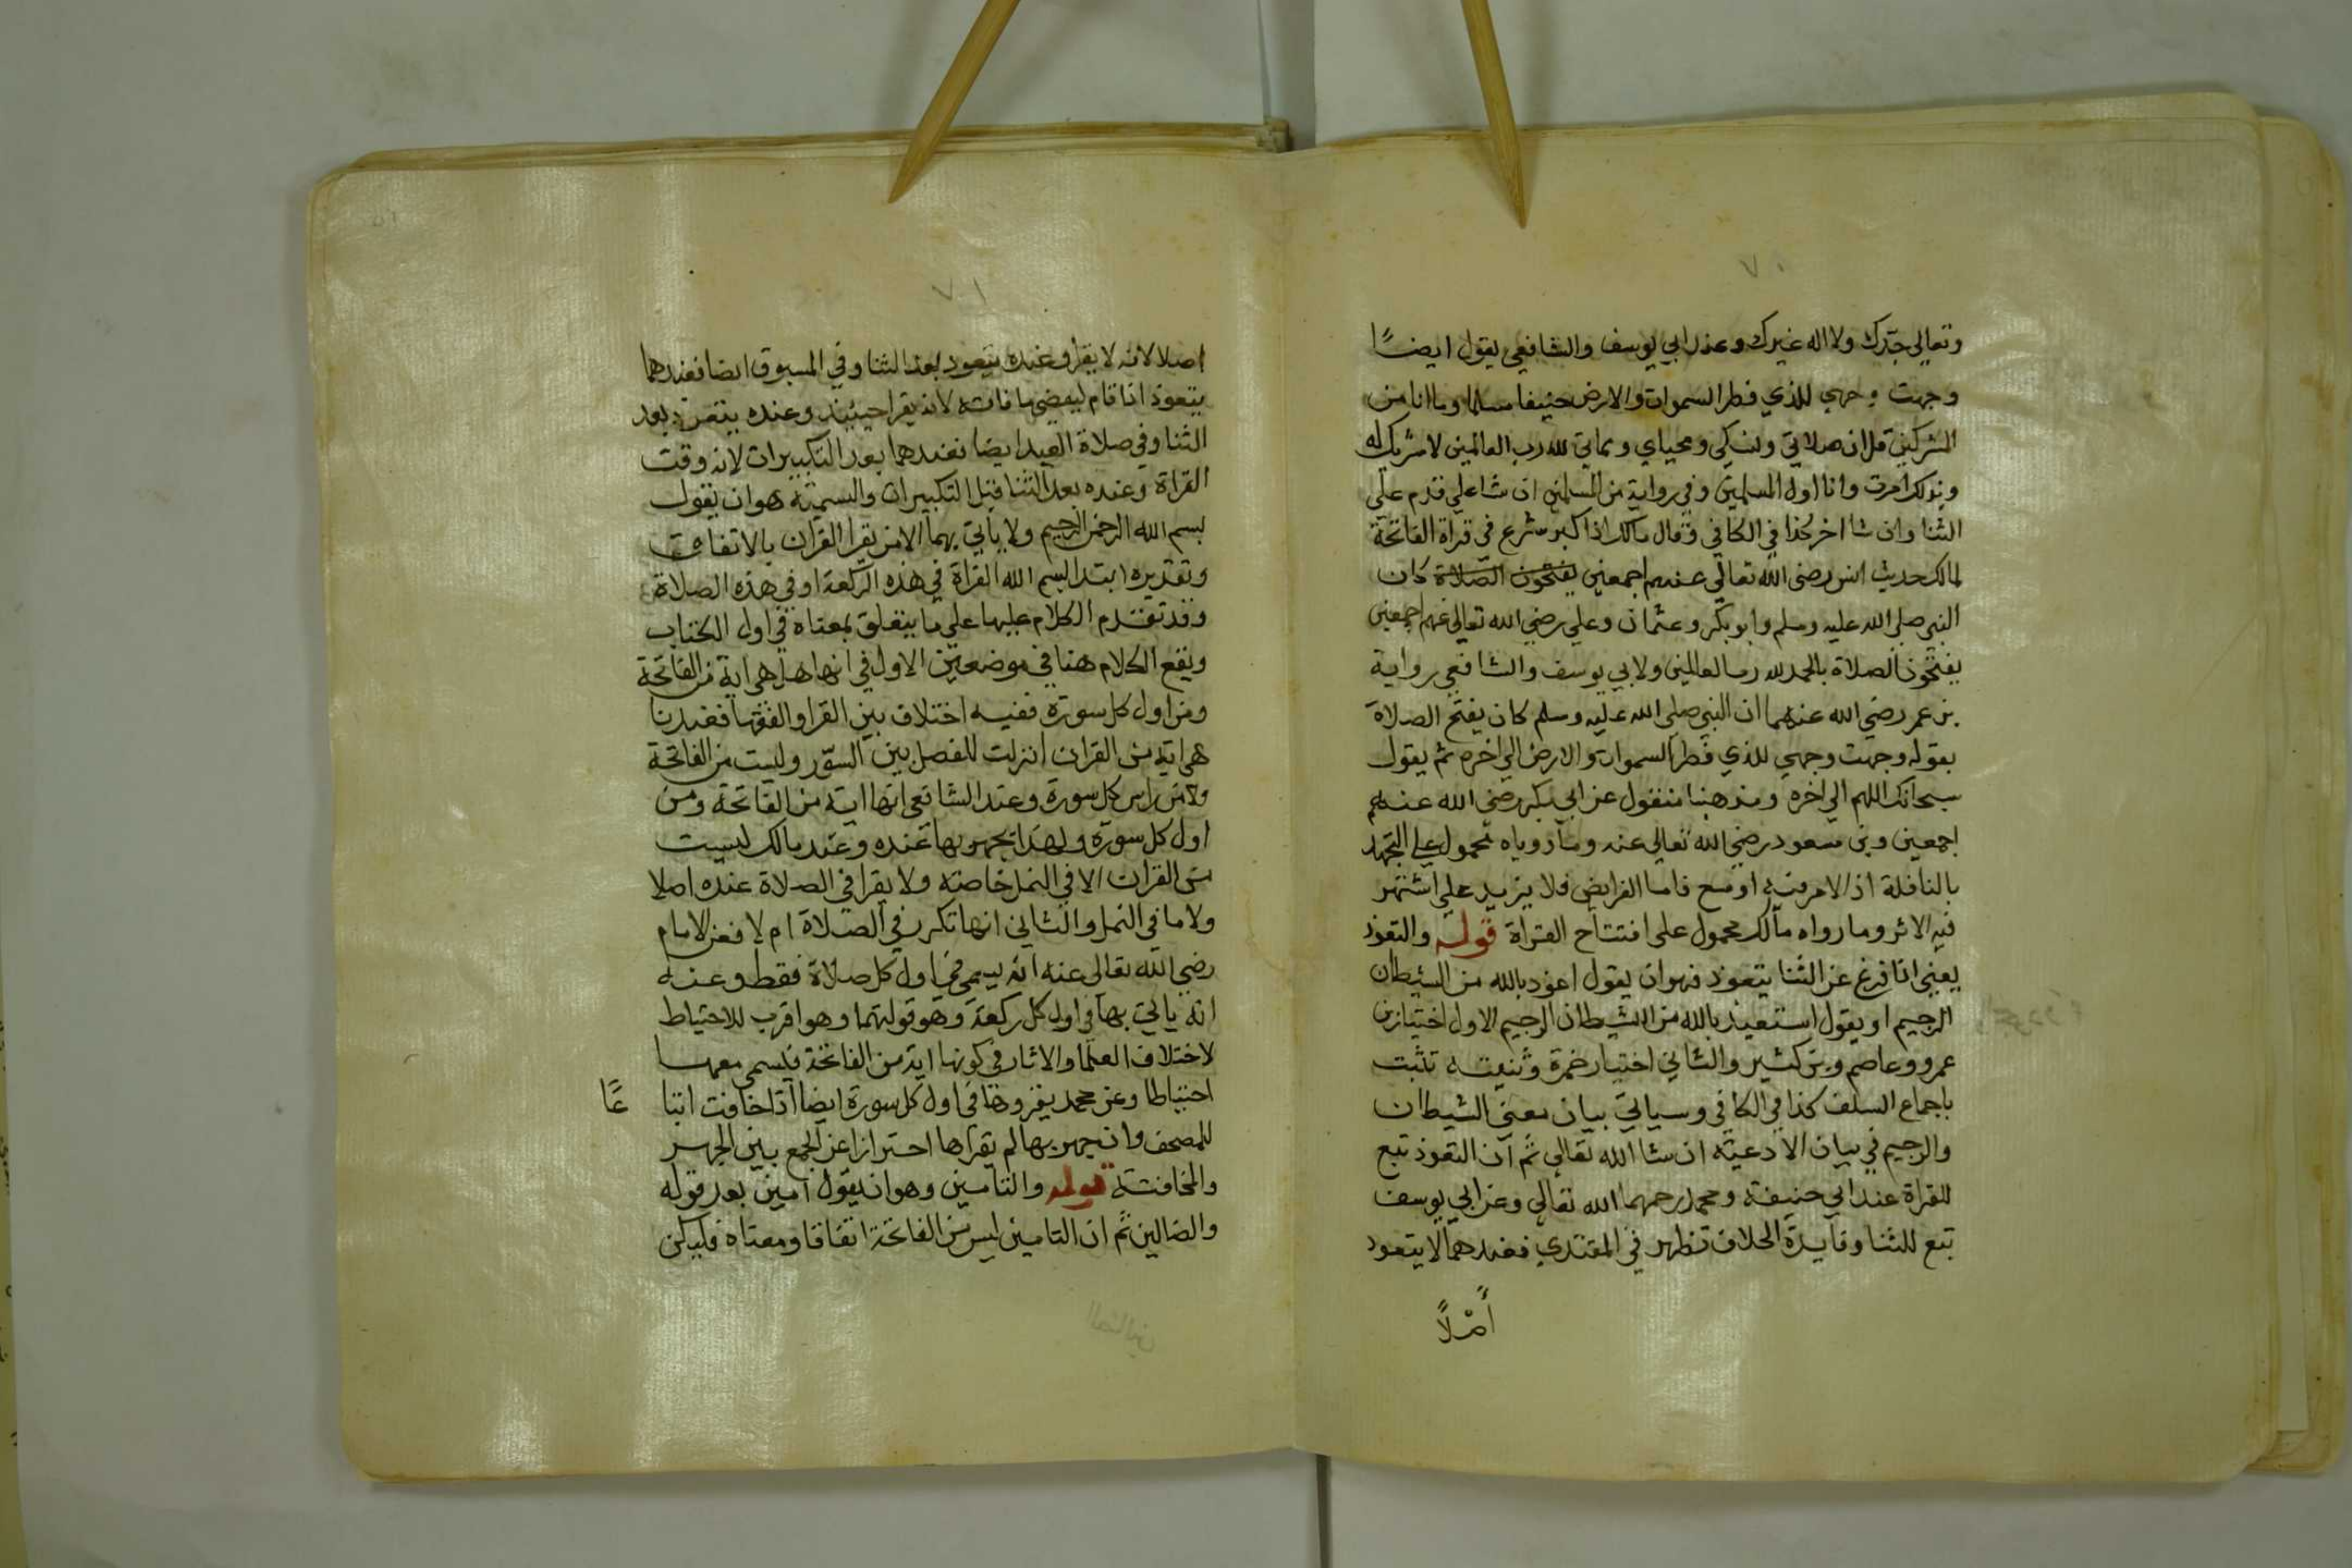 ٧٠
وتعالي جدك ولا اله غيرك وعند ابي يوسف والشافعي يقول ايضًا
وجهت وجهي للذي فطر السموات والارض حنيفا مسلما وما انا من
المشركين قل ان صلاتي ونسكي ومحياي ومماتي لله رب العالمين لا شريك له
وبذلك امرت وانا اول المسلمين وفي رواية من المسلمين ان شا علي قدم علي
الثنا وان شا اخر كذا في الكافي وقال مالك اذا كبر شرع في قراة الفاتحة
لمالك حديث انس رضي الله تعالي عنهم اجمعين يفتتحون الصلاة كان
النبي صلي الله عليه وسلم وابو بكر وعثمان وعلي رضي الله تعالي عنهم اجمعين
يفتتحون الصلاة بالحمد لله رب العالمين ولابي يوسف والشافعي رواية
بن عمر رضي الله عنهما ان النبي صلي الله عليه وسلم كان يفتح الصلاة
بقوله وجهت وجهي للذي فطر السموات والارض الي اخره ثم يقول
سبحانك اللهم الي اخره ومذهبنا منقول عن ابي بكر رضي الله عنهم
اجمعين وبن مسعود رضي الله تعالي عنه وما روياه محمول علي التهجد
بالنافلة اذ الامر فيه اوسع فاما الفرايض فلا يزيد علي اشتهر
فيه الاثر وما رواه مالك محمول علي افتتاح القراة قوله والتعوذ
يعني اذا فرغ عن الثنا يتعوذ فهو ان يقول اعوذ بالله من الشيطان
الرجيم او يقول استعيذ بالله من الشيطان الرجيم الاول اختيار بن
عمرو وعاصم وبن كثير والثاني اختيار حمزة وثنيته تثبت
باجماع السلف كذا في الكافي وسياتي بيان معني الشيطان
والرجيم في بيان الادعيته ان شا الله تعالي ثم ان التعوذ تبع
للقراة عند ابي حنيفة ومحمد رحمهما الله تعالي وعن ابي يوسف
تبع للثنا وفايدة الخلاف تظهر في المقتدي فعندهما لا يتعوذ
٧٠١
اصلا لانه لا يقرا وعنده يتعوذ بعد الثنا وفي المسبوق ايضا فعندهما
يتعوذ اذا قام ليقضي ما فاته لانه يقرا حينيذ وعنده يتعوذ بعد
الثنا وفي صلاة العيد ايضا فعندهما بعد التكبيرات لانه وقت
القراة وعنده بعد الثنا قبل التكبيرات والتسمية هو ان يقول
بسم الله الرحمن الرحيم ولا ياتي بهما الا من يقرا القران بالاتفاق
وتقديره ابتدا بسم الله القراة في هذه الركعة او في هذه الصلاة
وقد تقدم الكلام عليها علي ما يتعلق بمعناه في اول الكتاب
ويقع الكلام هنا في موضعين الاول في انها هل هي اية من الفاتحة
ومن اول كل سورة ففيه اختلاف بين القرا والفقها فعندنا
هي اية من القران انزلت للفصل بين السور وليست من الفاتحة
ولا من راس كل سورة وعند الشافعي انها اية من الفاتحة ومن
اول كل سورة ولهذا يجهر بها عنده وعند مالك ليست
من القران الا في النمل خاصته ولا يقرا في الصلاة عنده اصلا
ولا ما في النمل والثاني انها تكرر في الصلاة ام لا فعن الامام
رضي الله تعالي عنه انه يسمي في اول كل صلاة فقط وعنه
انه ياتي بها في اول كل ركعة وهو قولهما وهو اقرب للاحتياط
لاختلاف العلما والاثار في كونها اية من الفاتحة فيسمي معها
احتياطا وعن محمد يقروها في اول كل سورة ايضا اذا خافت اتبا عًا
للمصحف وان جهر بها لم يقراها احترازا عن الجمع بين الجهر
والمخافتة قوله والتامين وهو ان يقول امين بعد قوله
والضالين ثم ان التامين ليس من الفاتحة اتفاقا ومعناه فليكن